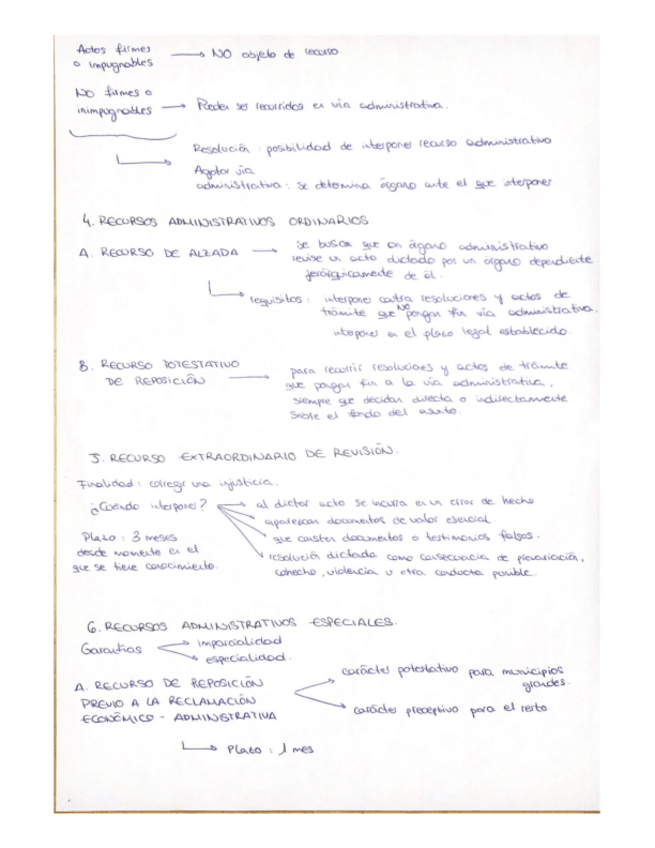 Actos firmes
o impugnables → NO objeto de recurso
NO firmes o
inimpugnables → Pueden ser recurridos en vía administrativa.
Resolución : posibilidad de interponer recurso administrativo
Agotar vía
administrativa : se determina órgano ante el que interponer.
4. RECURSOS ADMINISTRATIVOS ORDINARIOS
A. RECURSO DE ALZADA → Se busca que un órgano administrativo
revise un acto dictado por un órgano dependiente
jerárgicamente de él.
requisitos : interponer contra resoluciones y actos de
trámite que NO pongan fin vía administrativa.
interponer en el plazo legal establecido.
B. RECURSO POTESTATIVO
DE REPOSICIÓN → para recurrir resoluciones y actos de trámite
que pongan fin a la vía administrativa,
siempre que decidan directa o indirectamente
sobre el fondo del asunto.
5. RECURSO EXTRAORDINARIO DE REVISIÓN.
Finalidad : corregir una injusticia.
¿Cuándo interponer? → al dictar acto se incurra en un error de hecho
aparezcan documentos de valor esencial
que consten documentos o testimonios falsos.
resolución dictada como consecuencia de prevaricación,
cohecho, violencia u otra conducta punible.
Plazo : 3 meses
desde momento en el
que se tiene conocimiento.
6. RECURSOS ADMINISTRATIVOS ESPECIALES.
Garantías → imparcialidad
especialidad.
A. RECURSO DE REPOSICIÓN
PREVIO A LA RECLAMACIÓN
ECONÓMICO - ADMINISTRATIVA
carácter potestativo para municipios
grandes.
carácter preceptivo para el resto
Plazo : 1 mes